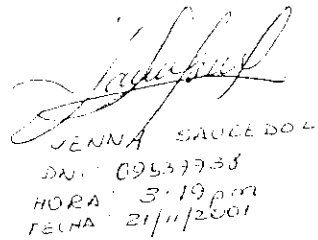 JENNA SAUCEDO L
DNI: 09537733
HORA: 3:19 pm
FECHA: 21/11/2001